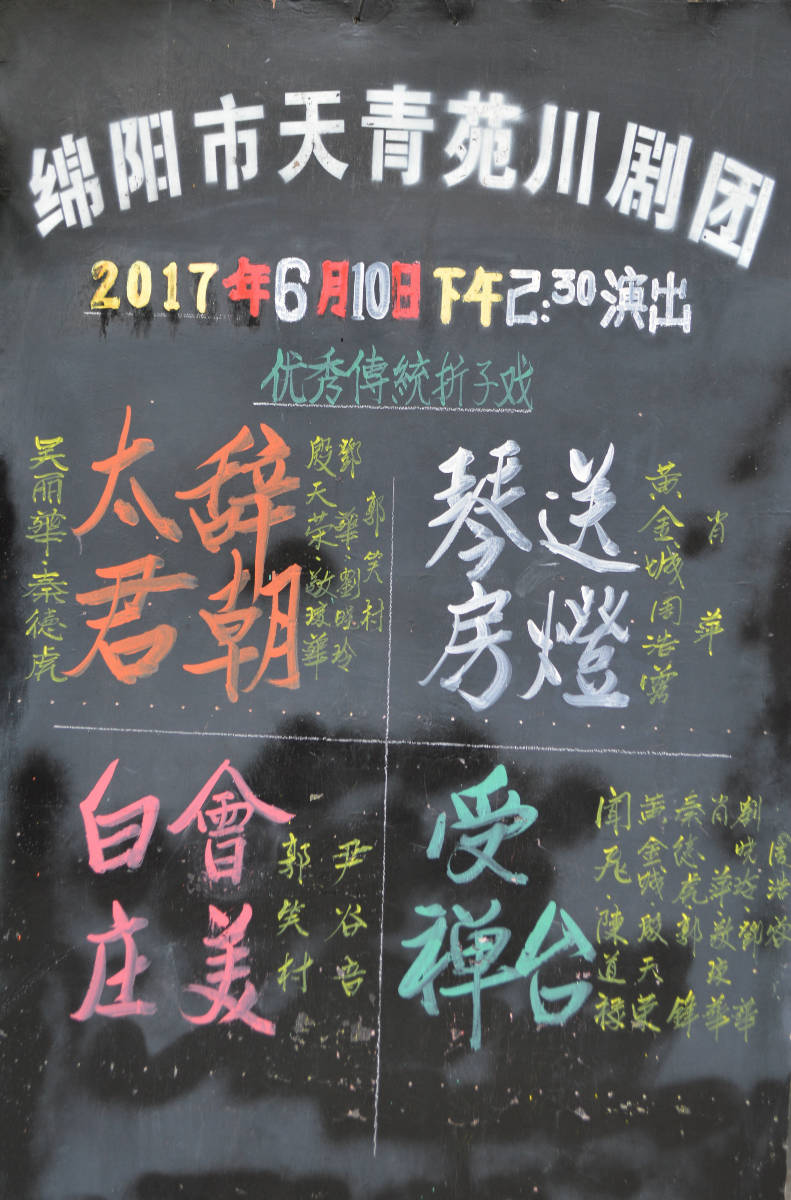 绵阳市天青苑川剧团
2017年6月10日下午2:30演出
优秀傳統折子戏
吴丽華·秦德虎
太君
辞朝
殷天荣·敬瓊華
鄧華·劉晓玲
郭笑村
琴房
送燈
黄金城周浩蓉
肖萍
白庄
會美
郭笑村
尹谷音
受禅台
闻飛·陳道禄
黄金城·殷天荣
秦德虎·郭鋒
肖萍·敬瓊華
劉晓玲·鄧華
周浩蓉